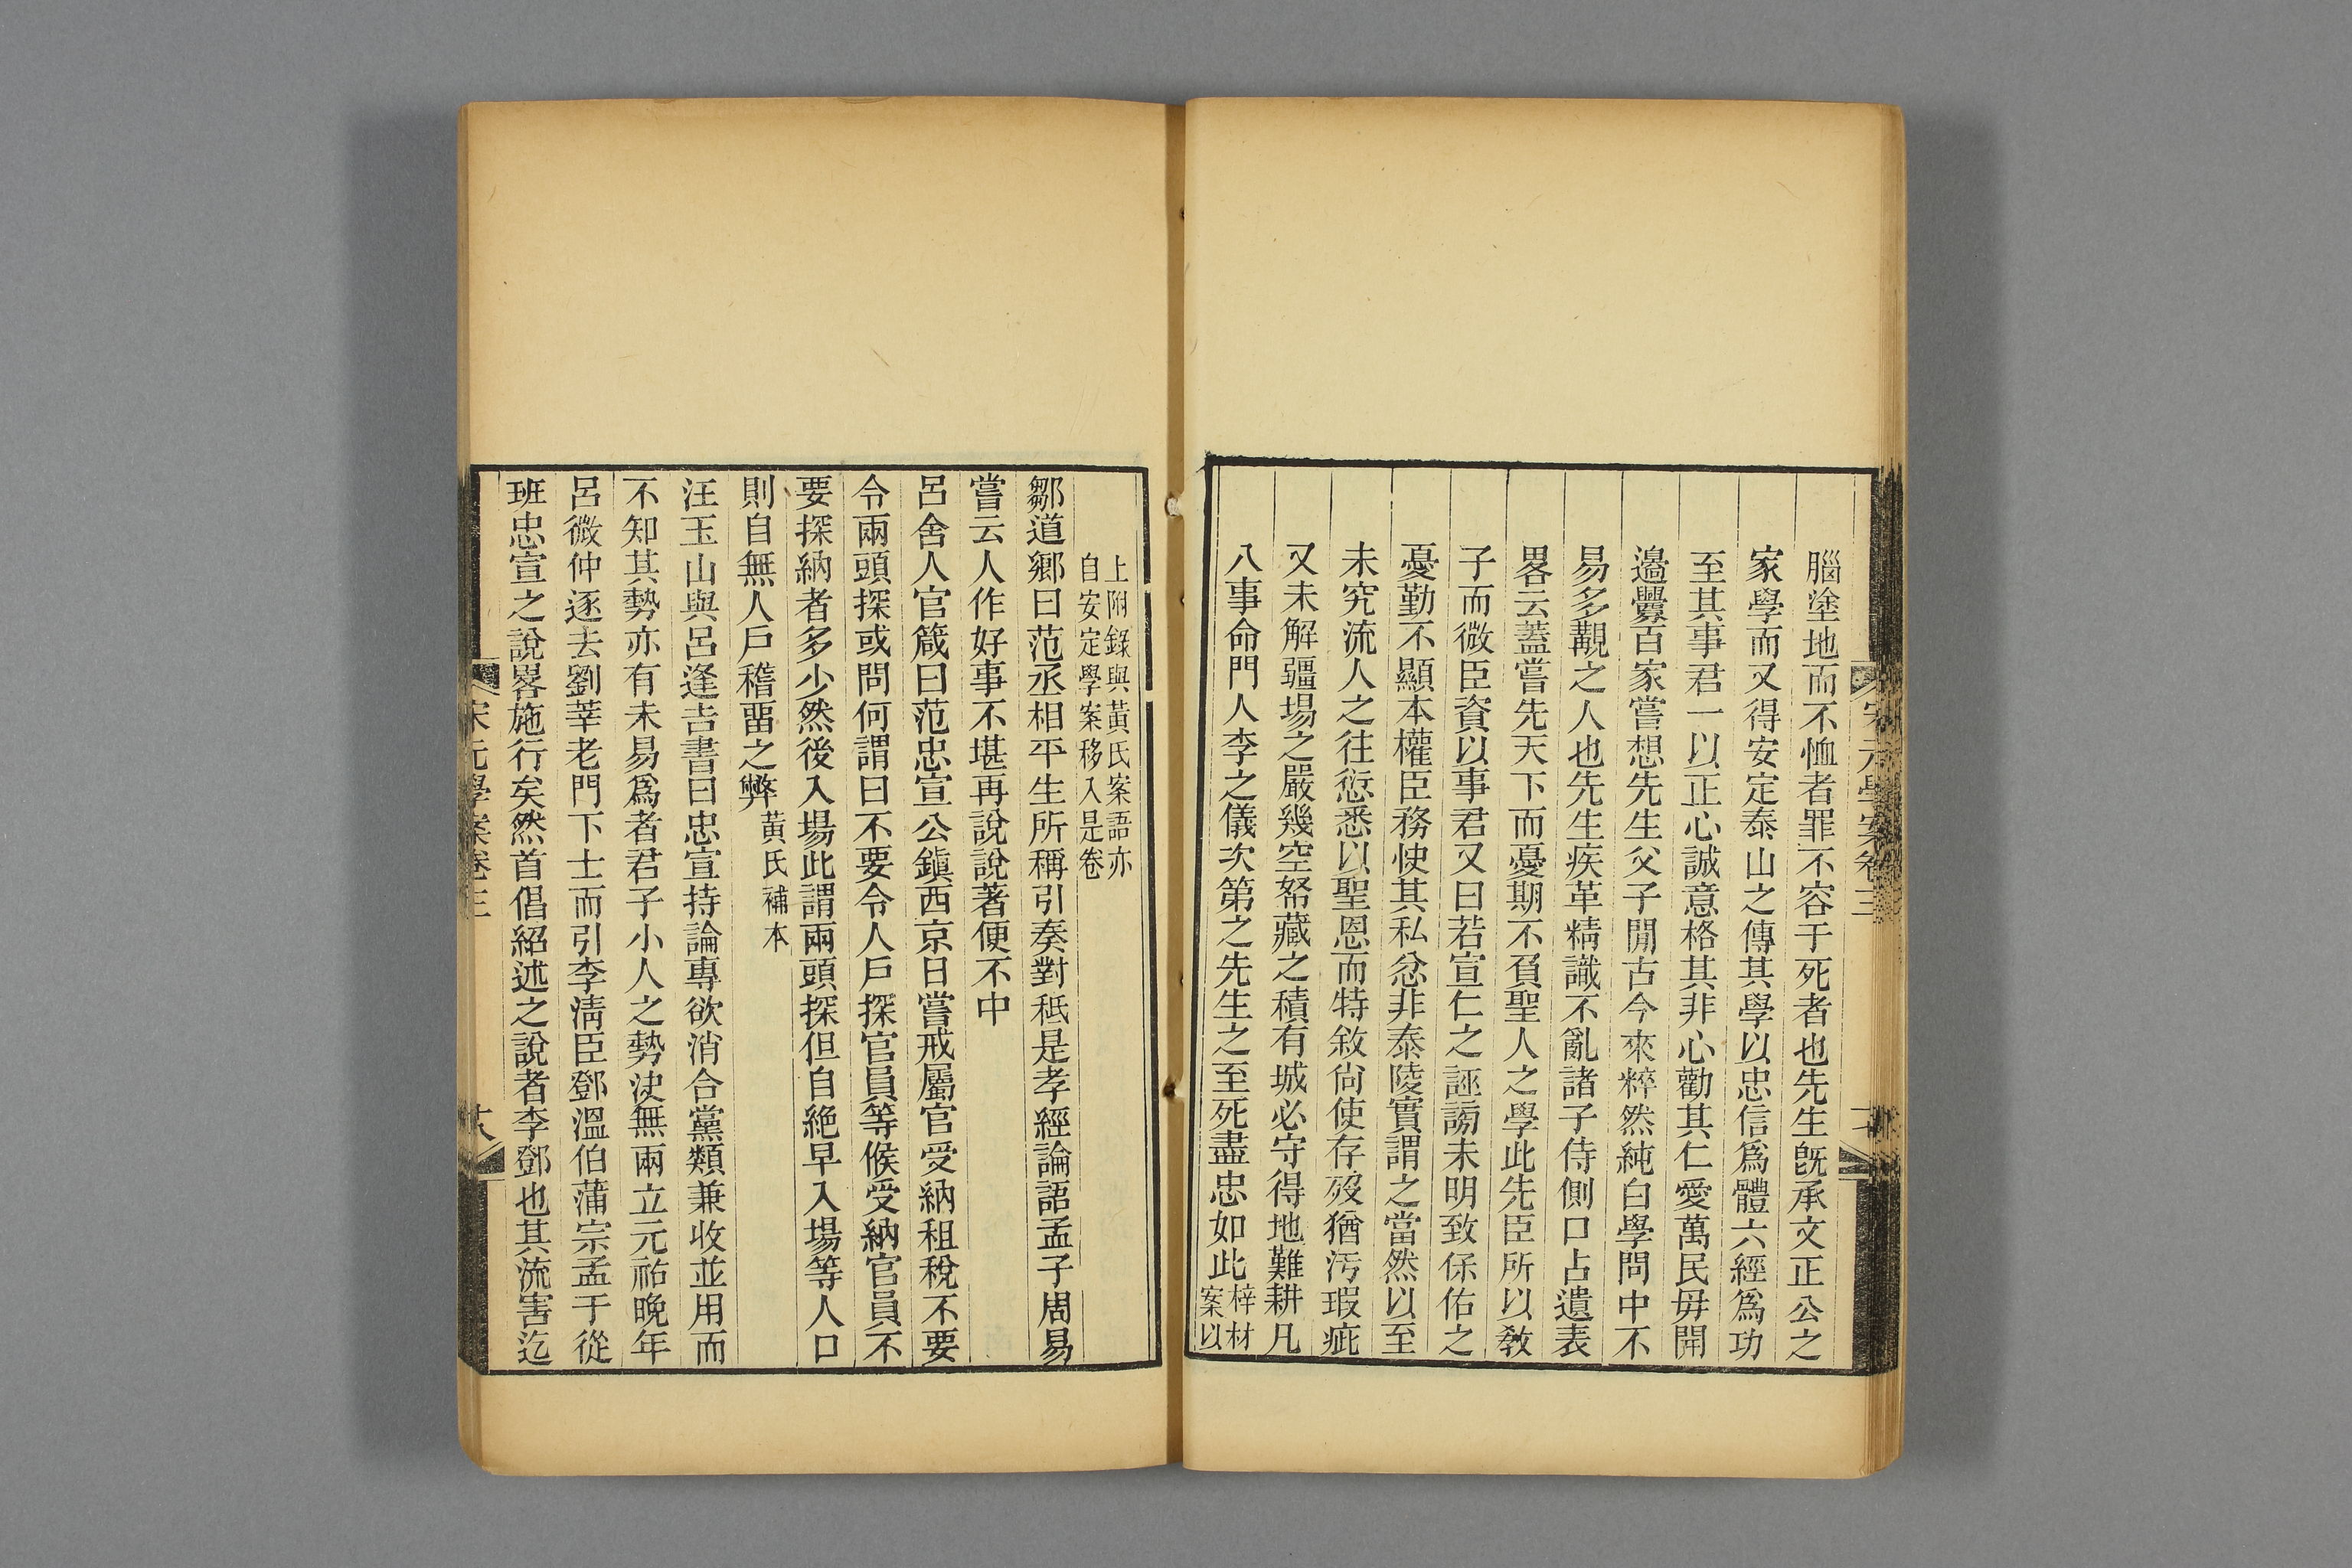 宋元學案卷三
腦塗地而不恤者罪不容于死者也先生旣承文正公之
家學而又得安定泰山之傳其學以忠信爲體六經爲功
至其事君一以正心誠意格其非心勸其仁愛萬民毋開
邉釁百家嘗想先生父子閒古今來粹然純白學問中不
易多覯之人也先生疾革精識不亂諸子侍側口占遺表
畧云蓋嘗先天下而憂期不負聖人之學此先臣所以敎
子而微臣資以事君又曰若宣仁之誣謗未明致保佑之
憂勤不顯本權臣務快其私忿非泰陵實謂之當然以至
未究流人之往愆悉以聖恩而特敘尙使存歿猶汚瑕疵
又未解疆場之嚴幾空帑藏之積有城必守得地難耕凡
八事命門人李之儀次第之先生之至死盡忠如此梓材案以
上附錄與黃氏案語亦
自安定學案移入是卷
鄒道鄉曰范丞相平生所稱引奏對秖是孝經論語孟子周易
嘗云人作好事不堪再說說著便不中
呂舍人官箴曰范忠宣公鎭西京日嘗戒屬官受納租稅不要
令兩頭探或問何謂曰不要令人戶探官員等候受納官員不
要探納者多少然後入場此謂兩頭探但自絕早入場等人口
則自無人戶稽畱之弊黃氏補本
汪玉山與呂逢吉書曰忠宣持論專欲消合黨類兼收並用而
不知其勢亦有未易爲者君子小人之勢決無兩立元祐晚年
呂微仲逐去劉莘老門下士而引李淸臣鄧溫伯蒲宗孟于從
班忠宣之說畧施行矣然首倡紹述之說者李鄧也其流害迄
宋元學案卷三